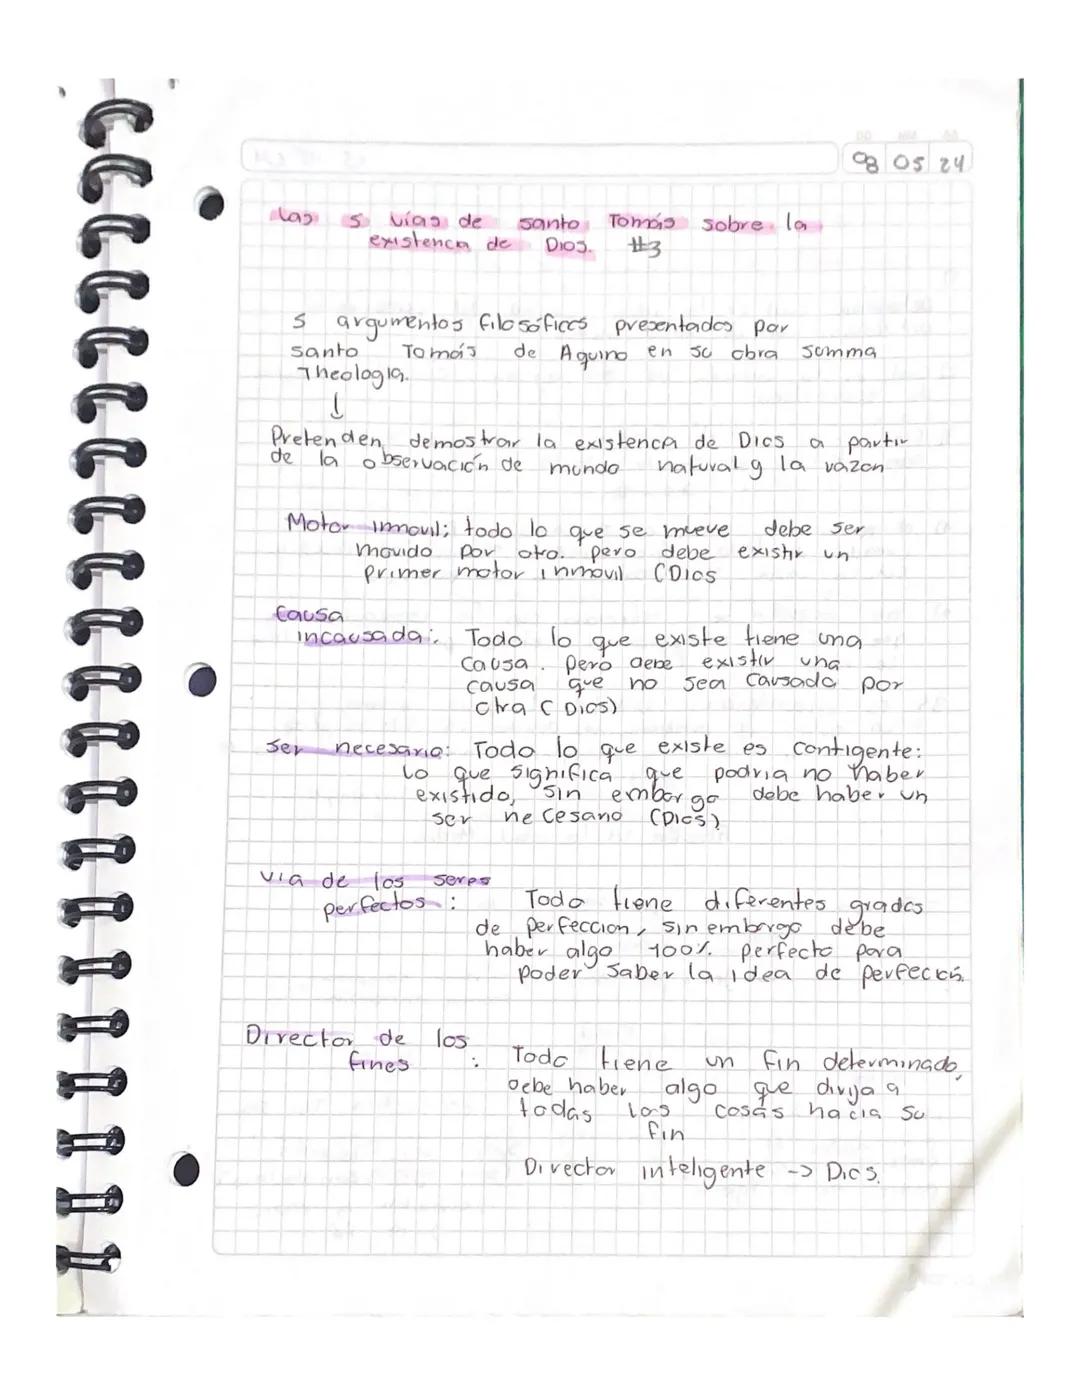 08 05 24
Las 5 vías de santo Tomás sobre la
existencia de Dios. #3
5 argumentos filosóficos presentados por
santo Tomás de Aquino en su obra Summa
Theologia.
↓
Pretenden demostrar la existencia de Dios a partir
de la observación de mundo natural y la razon
Motor inmovil; todo lo que se mueve debe ser
movido por otro. pero debe existir un
primer motor inmovil (Dios
Causa
incausada: Todo lo que existe tiene una
causa. Pero debe existir una
causa que no sea causada por
otra (Dios)
Ser necesario: Todo lo que existe es contigente:
Lo que significa que podria no haber
existido, sin embargo debe haber un
ser necesario (Dios)
Via de los seres
perfectos: Todo tiene diferentes grados
de perfeccion, sin embargo debe
haber algo 100% perfecto para
poder saber la idea de perfección.
Director de los
fines : Todo tiene un fin determinado,
debe haber algo que dirija a
todas las cosas hacia su
fin
Director inteligente -> Dios.